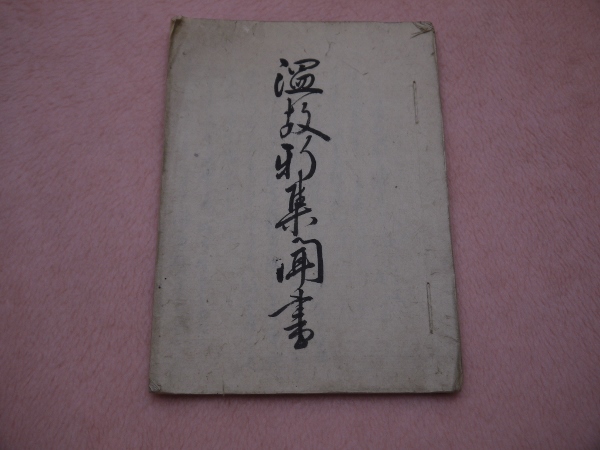 温故新集聞書